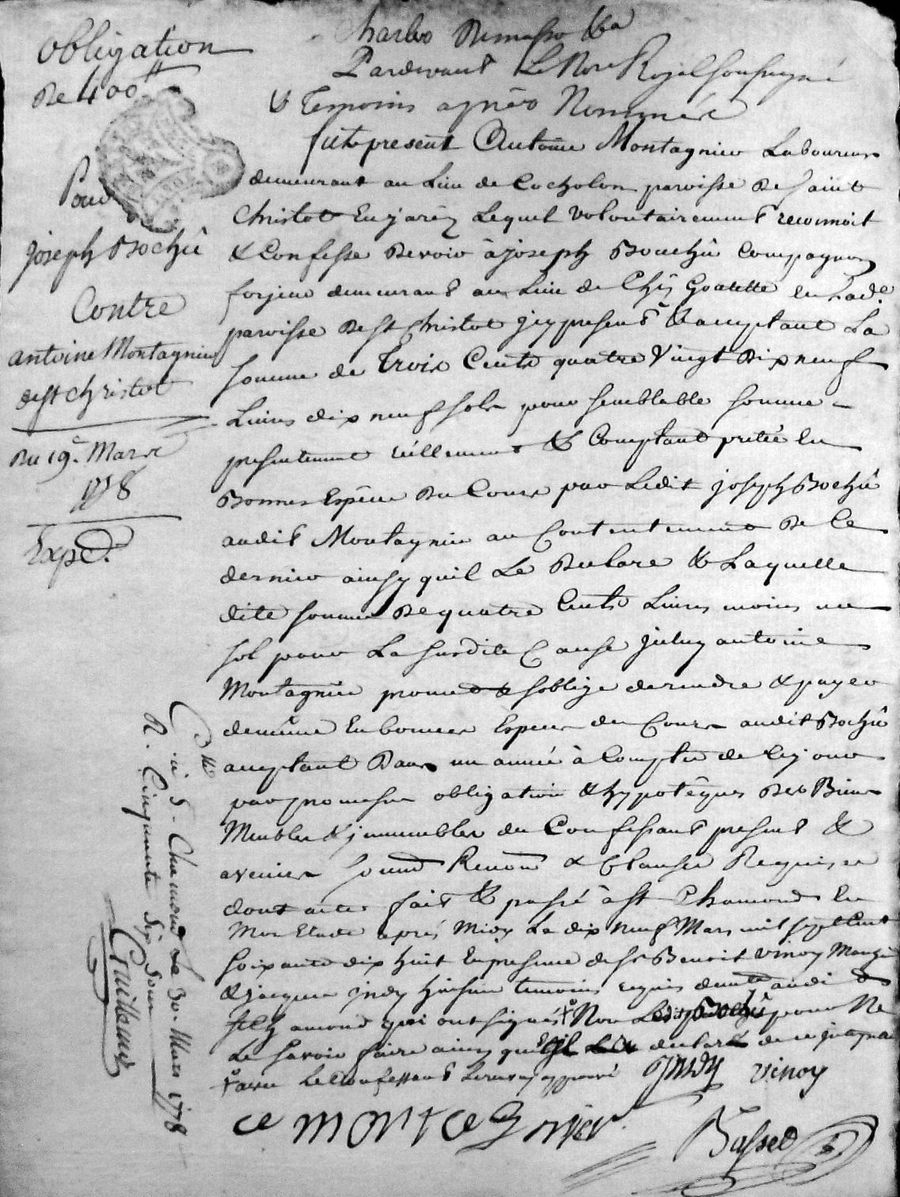 obligation
de 400tt
Pour
joseph Bochu
Contre
antoine Montagnier
de st christot
du 19e. Mars
1778
Expd.
Pardevant Le Nore Royal soussigné
& Temoins après Nommés
fut present Antoine Montagnier Laboureur
demeurant au Lieu de Cocholon paroisse de saint
Christot En jarêz Lequel volontairement reconnoit
& Confesse devoir à joseph Bouchû Compagnon
forjeur demeurant au Lieu de Goatette en Lade.
paroisse de st christot jcy present & acceptant La
somme de Trois Cents quatre vingt dix neuf
Livres dix neuf sols pour semblable somme
presentement réellement & Comptant pretée En
Bonnes Espéces du Cours par Ledit joseph Bochû
audit Montagnier au Contentement de Ce
dernier ainsy quil Le Declare & Laquelle
dite somme de quatre Cents Livres moins un
sol pour La susdite Cause jceluy antoine
Montagnier promet & soblige de rendre & payer
de même En bonnes Espéces du Cours audit Bochû
acceptant Dans un année à Compter de Ce jour
par promesse obligation & hypotêques des Biens
Meubles & jmmeubles du Confessant presents &
avenir soumd Renond & Clauses Requises
dont acte fait & passé à st Chamond En
Mon Etude après Midy Le dix neuf Mars mil sept Cent
soixante dix huit En presence de sr Benoit vinoy
& jacques jndy temoins requis audit
st Chamond qui ont signés + Non Ledit Bochû pour Ne
Le savoir faire ainsy quil declaré de ce
+ avec Le Confessant approuvé jndy vinoy
ce montagnier
Basset
Clé à S- Chamond Le 30 Mars 1778
R. Cinquante six sous